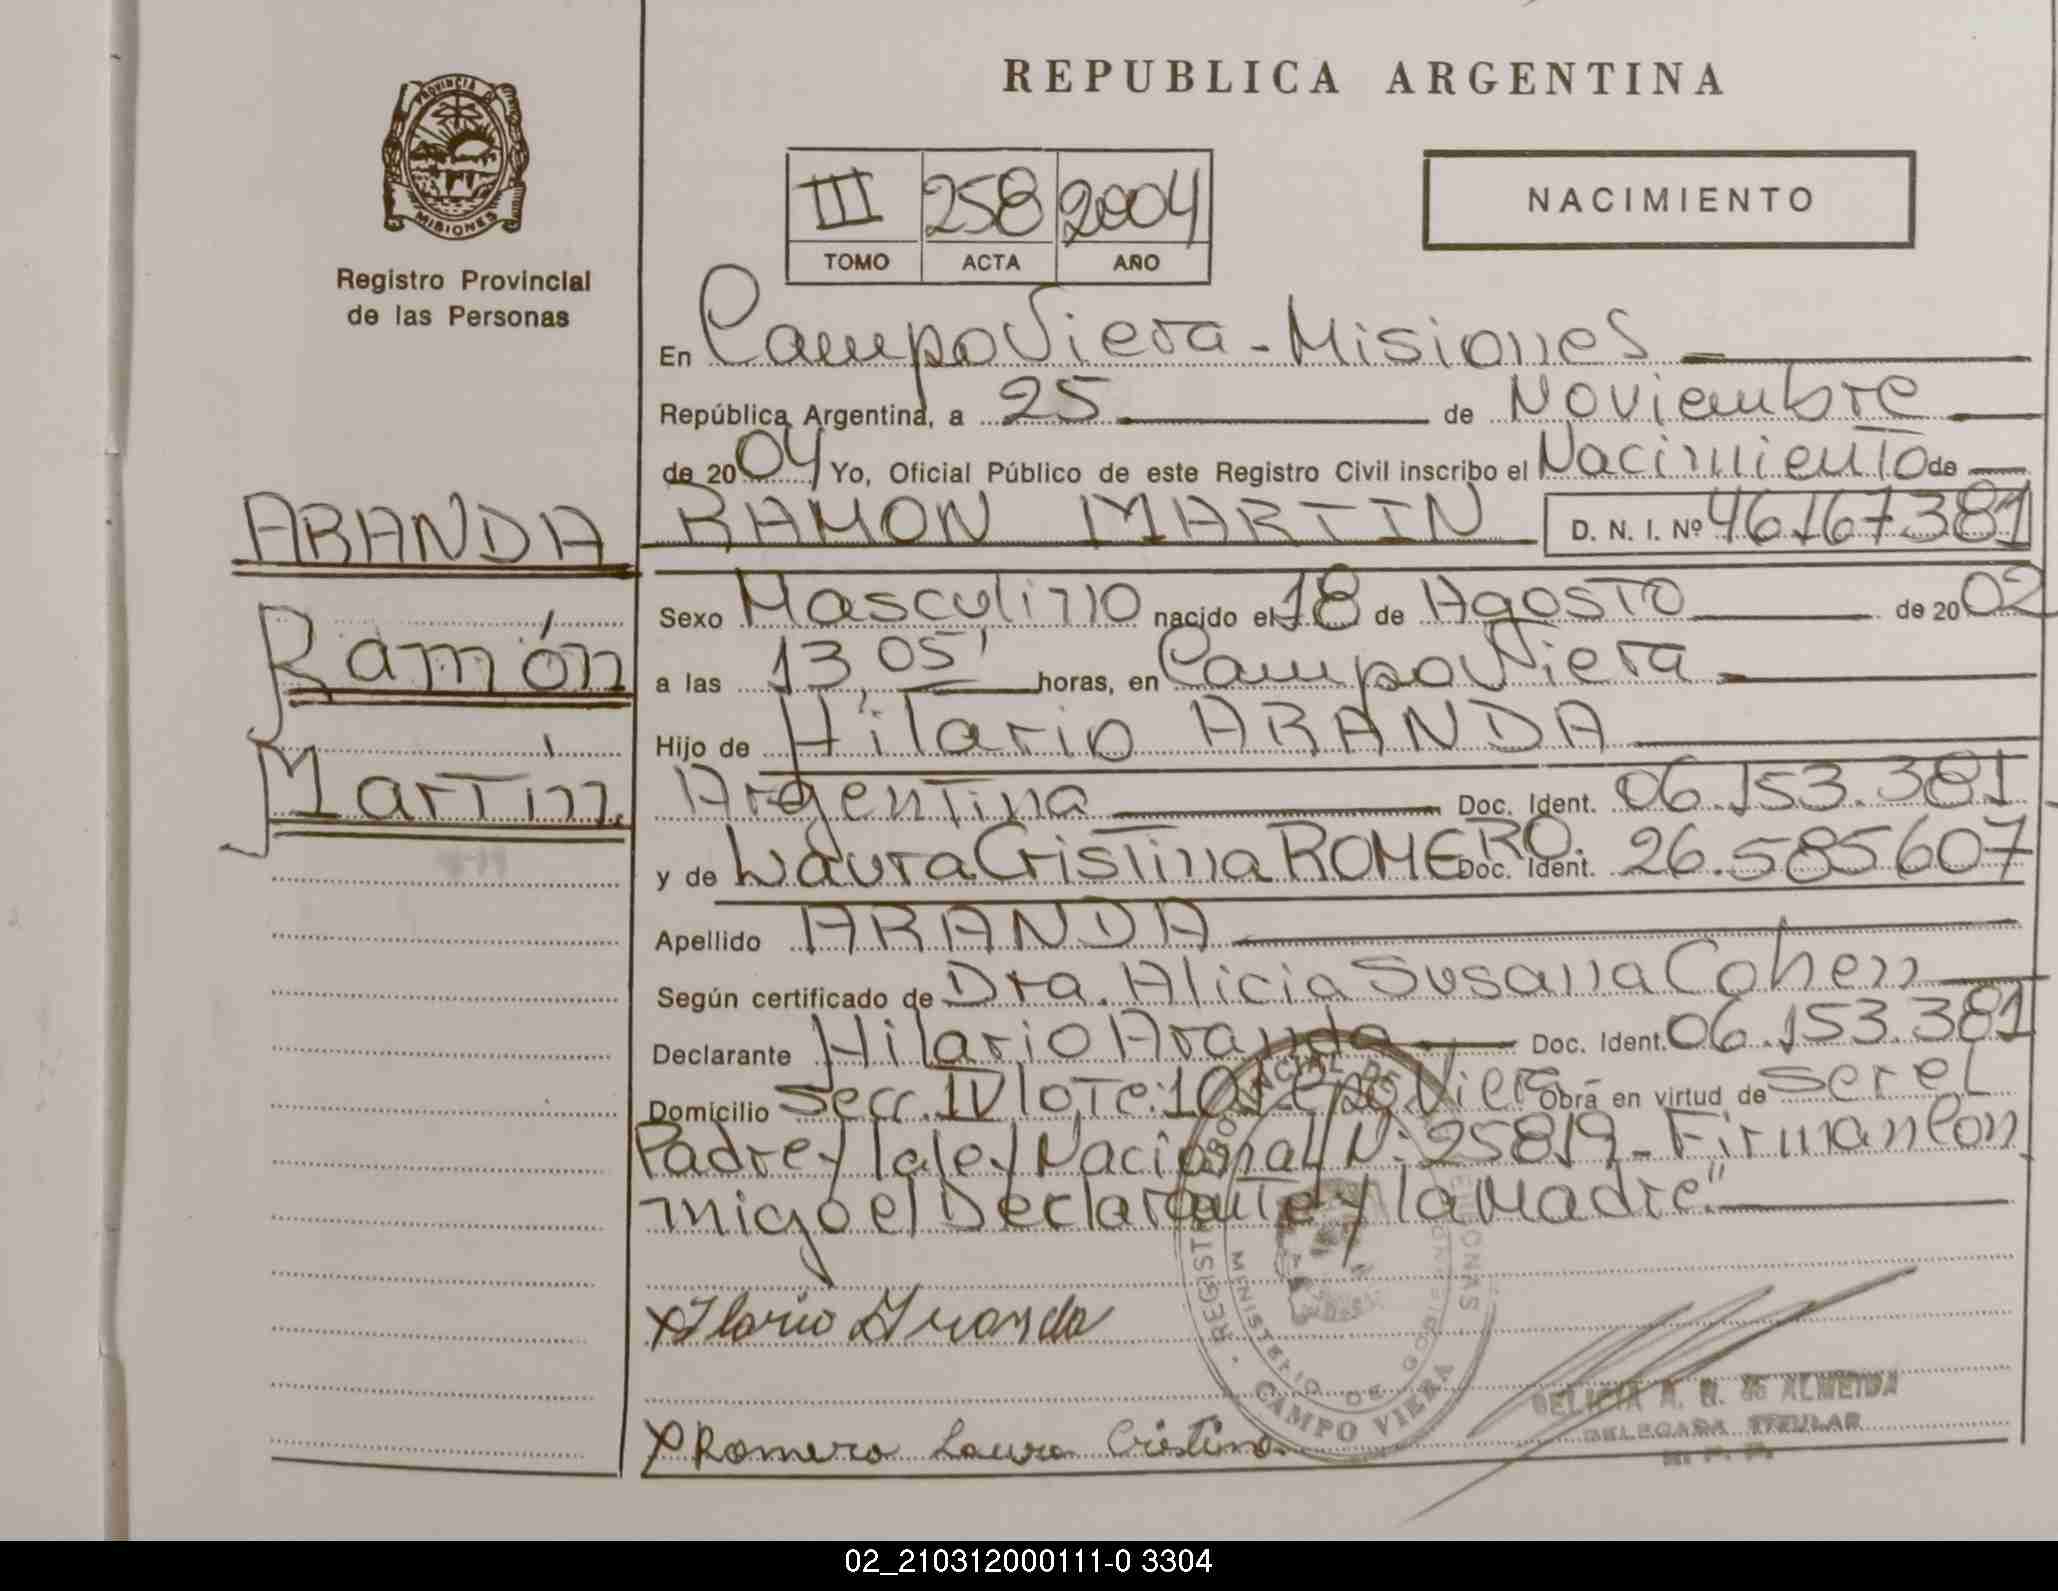 PROVINCIA DE
MISIONES
Registro Provincial
de las Personas
ARANDA
Ramón
Martín.
REPUBLICA ARGENTINA
III 258 2004
TOMO ACTA AÑO
NACIMIENTO
En Campo Viera - Misiones
República Argentina, a 25 de Noviembre
de 2004 Yo, Oficial Público de este Registro Civil inscribo el Nacimiento de
RAMON MARTIN D. N. I. Nº 46.167.381
Sexo Masculino nacido el 18 de Agosto de 2002
a las 13,05' horas, en Campo Viera
Hijo de Hilario ARANDA
Argentina Doc. Ident. 06.153.381
y de Laura Cristina ROMERO. Doc. Ident. 26.585607
Apellido ARANDA
Según certificado de Dra. Alicia Susana Cohen
Declarante Hilario Aranda Doc. Ident. 06.153.381
Domicilio Secc. IV lote: 101 - Cpo Viera Obra en virtud de ser el
Padre y la ley Nacional N: 25819 - Firman con
migo el Declarante y la Madre"
REGISTRO PROVINCIAL DE LAS PERSONAS
MINISTERIO DE GOBIERNO
CAMPO VIERA
Ilario Aranda
Romero Laura Cristina
DELICIA A. de ALMEIDA
DELEGADA TITULAR
02_210312000111-0 3304